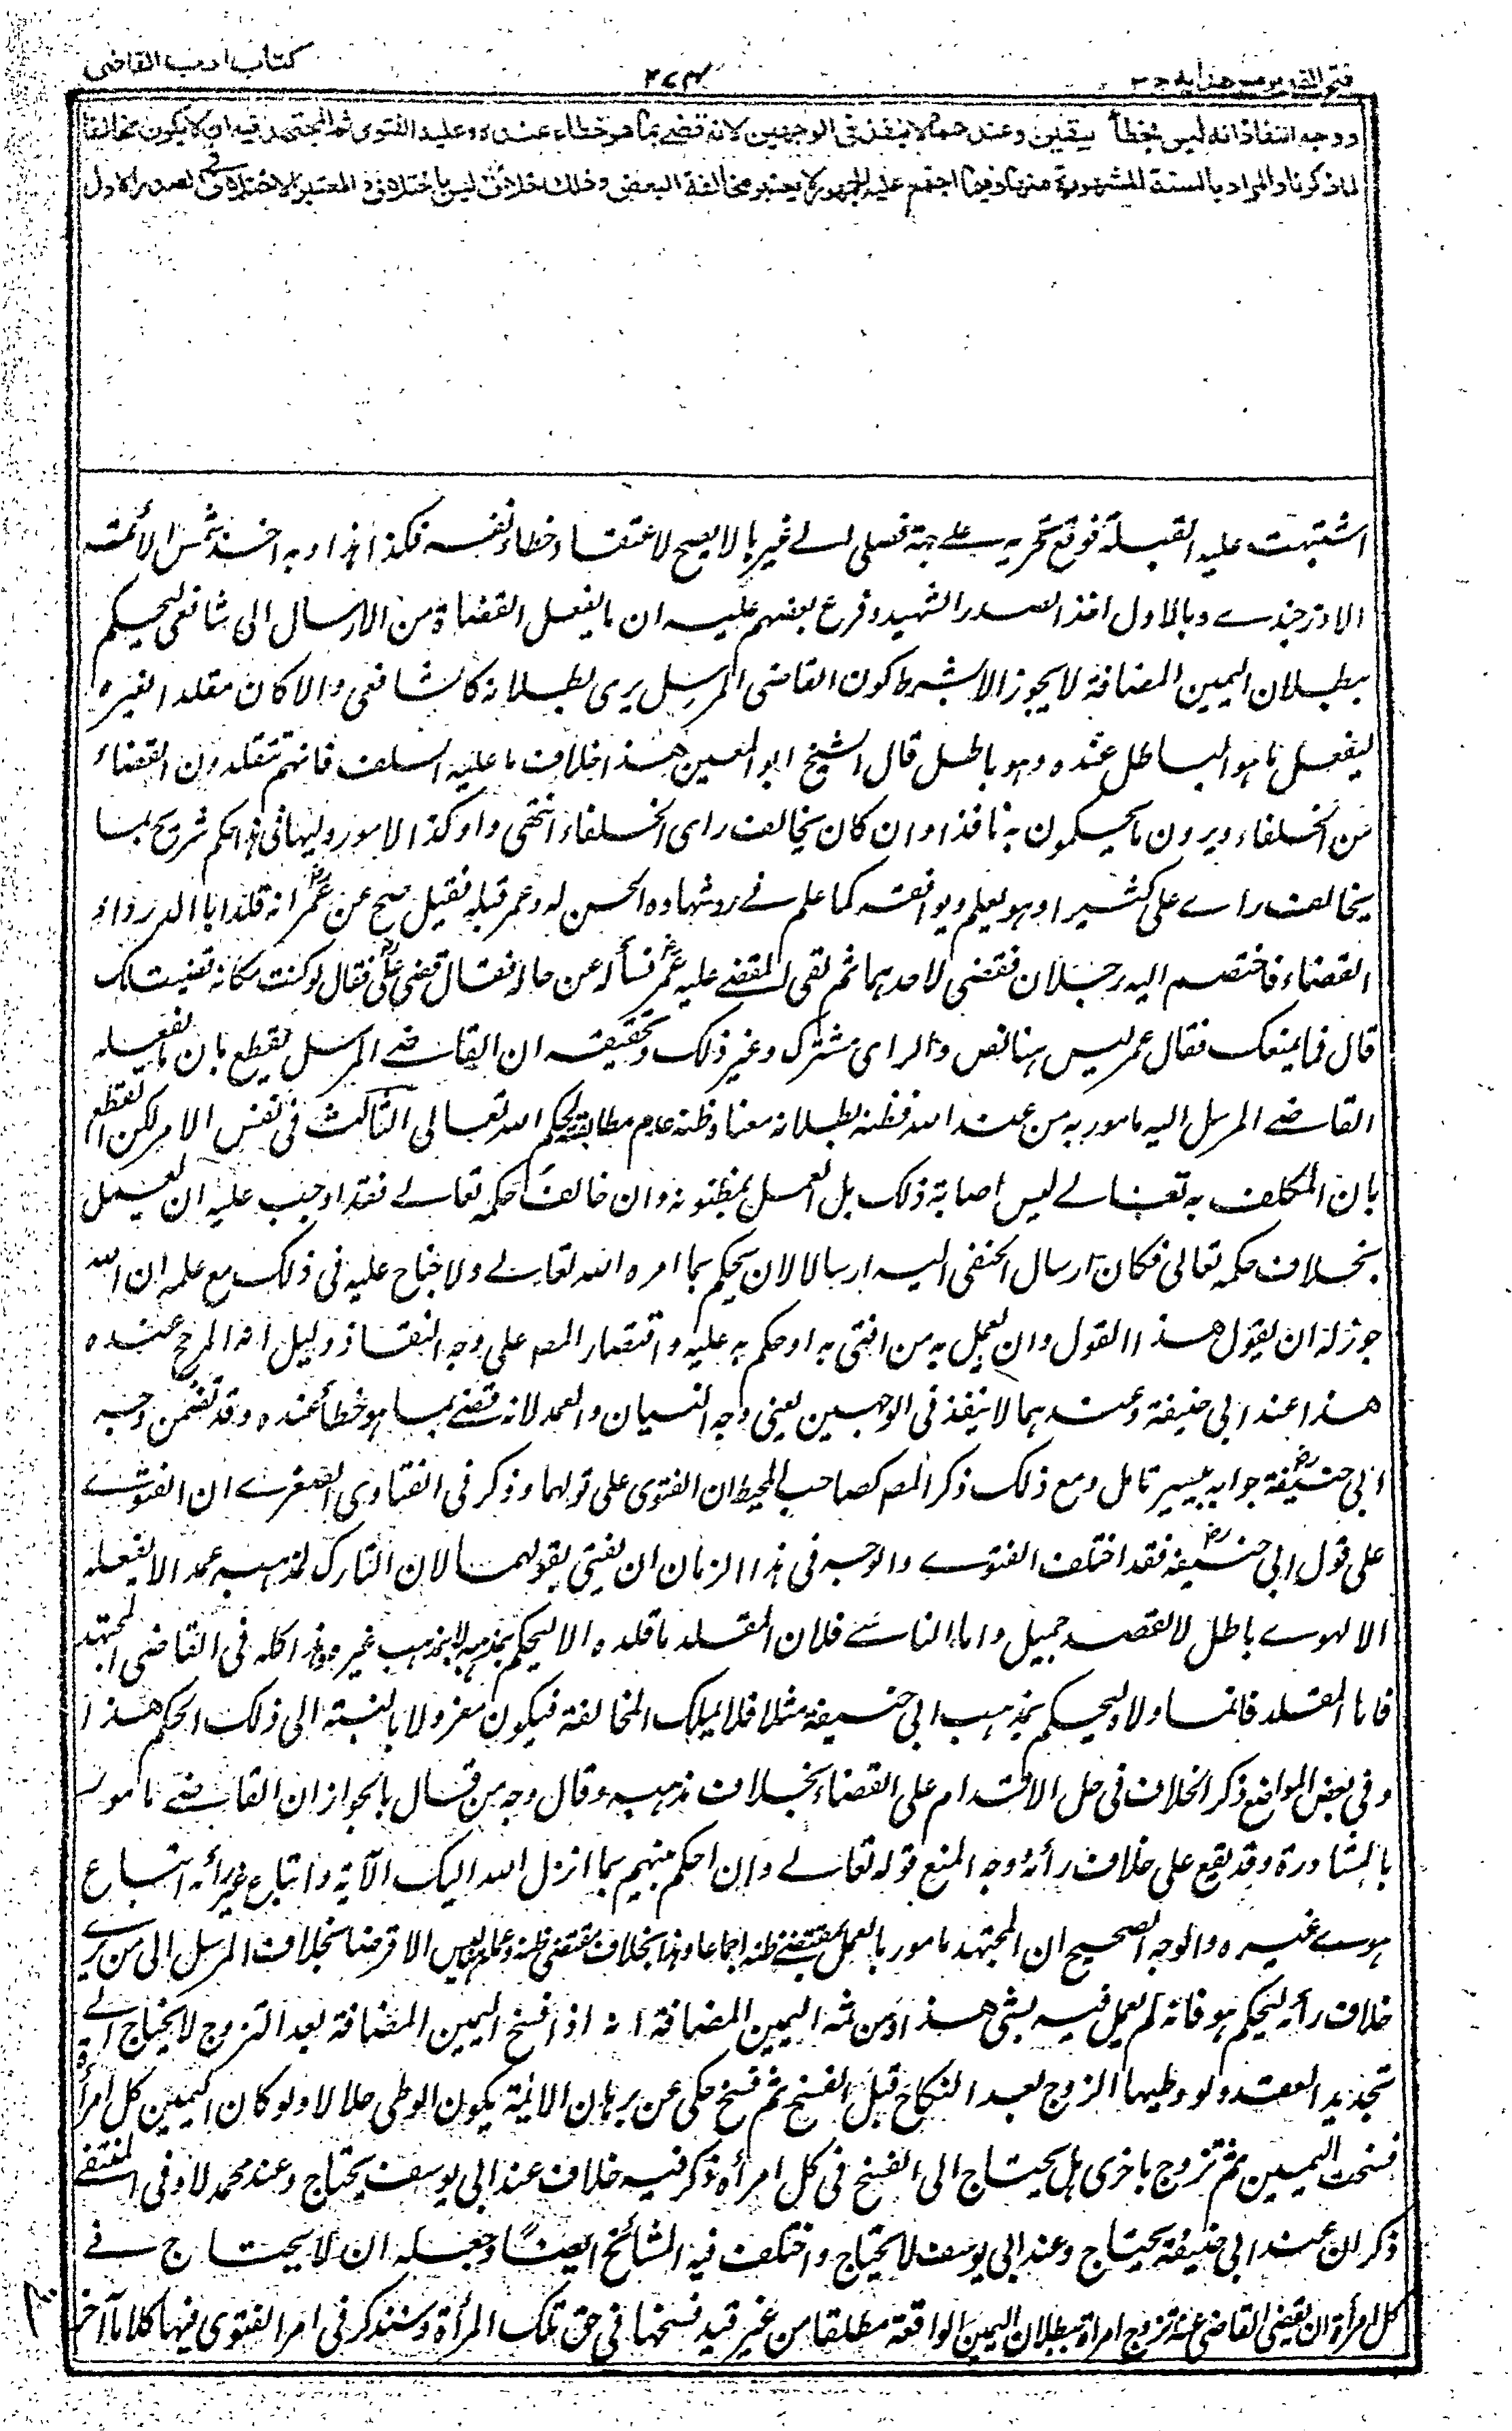 فتح القدير مع هدايه ج ٣
٣٧٤
كتاب ادب القاضى
ووجه النفاذ انه ليس بخطأ بيقين وعندهما لا ينفذ فى الوجهين لانه قضى بما هو خطاء عنده وعليه الفتوى ثم المجتهد فيه ان لا يكون مخالفا
لما ذكرنا والمراد بالسنة المشهورة منها وفيما اجتمع عليه الجمهور لا يعتبر مخالفة البعض وذلك خلاف ليس باختلاف والمعتبر الاختلاف فى الصدر الاول
اشتبهت عليه القبلة فوقع تحريه على جهة فصلى الى غيرها لا يصح لاعتقاد خطاء نفسه فكذا هذا وبه اخذ شمس الأئمة
الاوزجندى وبالاول اخذ الصدر الشهيد وفرع بعضهم عليه ان ما يفعل القضاة من الارسال الى شافعى ليحكم
ببطلان اليمين المضافة لا يجوز الا بشرط كون القاضى المرسل يرى بطلانه كالشافعى والا كان مقلدا لغيره
ليفعل ما هو الباطل عنده وهو باطل قال الشيخ ابو المعين هذا خلاف ما عليه السلف فانهم يتقلدون القضاء
من الخلفاء ويرون ما يحكمون به نافذا وان كان يخالف راى الخلفاء انتهى واوكد الامور وليها فى هذا حكم شريح بما
يخالف راى على كثيرا وهو يعلم ويوافقه كما علم فى رد شهادة الحسن له وعمر قبله نقيل صح عن عمر رض انه قلد ابا الدرداء
القضاء فاختصم اليه رجلان فقضى لاحدهما ثم لقى المقضى عليه عمر رض فسأله عن حاله فقال قضى على فقال لو كنت مكانه قضيت لك
قال فما يمنعك فقال عمر ليس هنا نص والراى مشترك وغير ذلك وتحقيقه ان القاضى المرسل يقطع بان ما يفعله
القاضى المرسل اليه مامور به من عند الله فظنه بطلانه معناه ظنه عدم مطابقته لحكم الله تعالى الثابت فى نفس الامر لكن القطع
بان المكلف به تعالى ليس اصابة ذلك بل العمل بمظنونه وان خالف حكمه تعالى فقد اوجب عليه ان يعمل
بخلاف حكمه تعالى فكان ارسال الحنفى اليه ارسالا لان يحكم بما امره الله تعالى ولا جناح عليه فى ذلك مع علمه ان الله
جوز له ان يقول هذا القول وان يعمل به من افتى به او حكم به عليه واقتصار المصه على وجه النفاذ دليل انه المرجح عنده
هذا عند ابى حنيفة وعندهما لا ينفذ فى الوجهين يعنى وجه النسيان والعمد لانه قضى بما هو خطأ عنده وقد تضمن وجه
ابى حنيفة رض جوابه بيسير تامل ومع ذلك ذكر المصه كصاحب المحيط ان الفتوى على قولهما وذكر فى الفتاوى الصغرى ان الفتوى
على قول ابى حنيفة رض فقد اختلف الفتوى والوجه فى هذا الزمان ان يفتى بقولهما لان التارك لمذهبه عمدا لا يفعله
الا لهوى باطل لا لقصد جميل واما الناسى فلان المقلد ما قلده الا ليحكم بمذهبه لا بمذهب غيره هذا كله فى القاضى المجتهد
فاما المقلد فانما ولاه ليحكم بمذهب ابى حنيفة مثلا فلا يملك المخالفة فيكون معزولا بالنسبة الى ذلك الحكم هذا
وفى بعض المواضع ذكر الخلاف فى حل الاقدام على القضاء بخلاف مذهبه وقال وجه من قال بالجواز ان القاضى مامور
بالمشاورة وقد يقع على خلاف رأيه وجه المنع قوله تعالى وان احكم بينهم بما انزل الله اليك الآية واتباع غير رأيه اتباع
هوى غيره والوجه الصحيح ان المجتهد مامور بالعمل بمقتضى ظنه اجماعا وهذا بخلاف مقتضى ظنه وعمله هنا ليس الا قرضا بخلاف المرسل الى من يرى
خلاف رأيه ليحكم هو فانه لم يعمل فيه بشئ هذا ومن ثمة اليمين المضافة انه اذا فسخ اليمين المضافة بعد التزوج لا يحتاج الى
تجديد العقد ولو وطيها الزوج بعد النكاح قبل الفسخ ثم فسخ حكى عن برهان الائمة يكون الوطى حلالا ولو كان اليمين كل امرأة
فسخت اليمين ثم تزوج باخرى هل يحتاج الى الفسخ فى كل امرأة ذكر فيه خلاف عند ابى يوسف يحتاج وعند محمد لا وفى المنتقى
ذكر ان عند ابى حنيفة يحتاج وعند ابى يوسف لا يحتاج واختلف فيه المشائخ ايضا وجعله ان لا يحتاج فى
كل امرأة ان يقضى القاضى عند تزوج امراة ببطلان اليمين الواقعة مطلقا من غير قيد فسخها فى حق تلك المرأة وسنذكر فى امر الفتوى فيها كلاما آخر